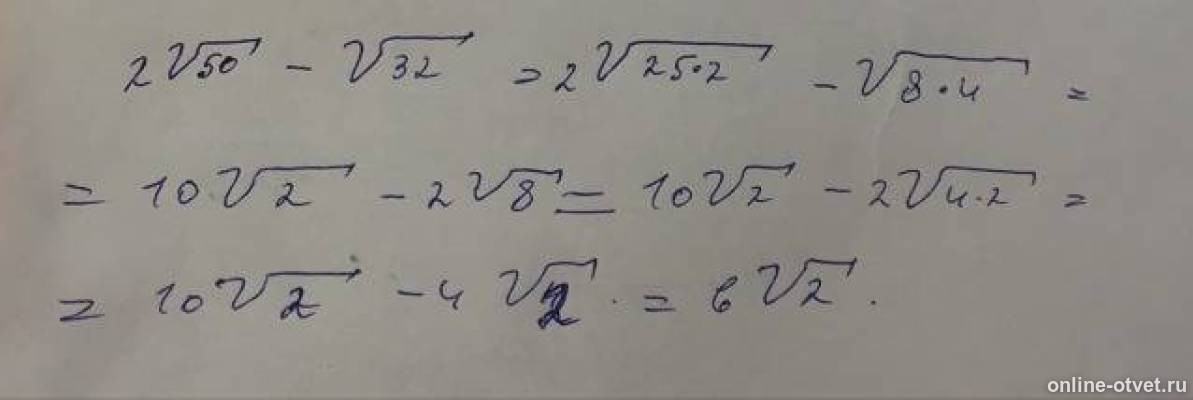 2√50 - √32 = 2√25·2 - √8·4 =
= 10√2 - 2√8 = 10√2 - 2√4·2 =
= 10√2 - 4√2 = 6√2.
online-otvet.ru